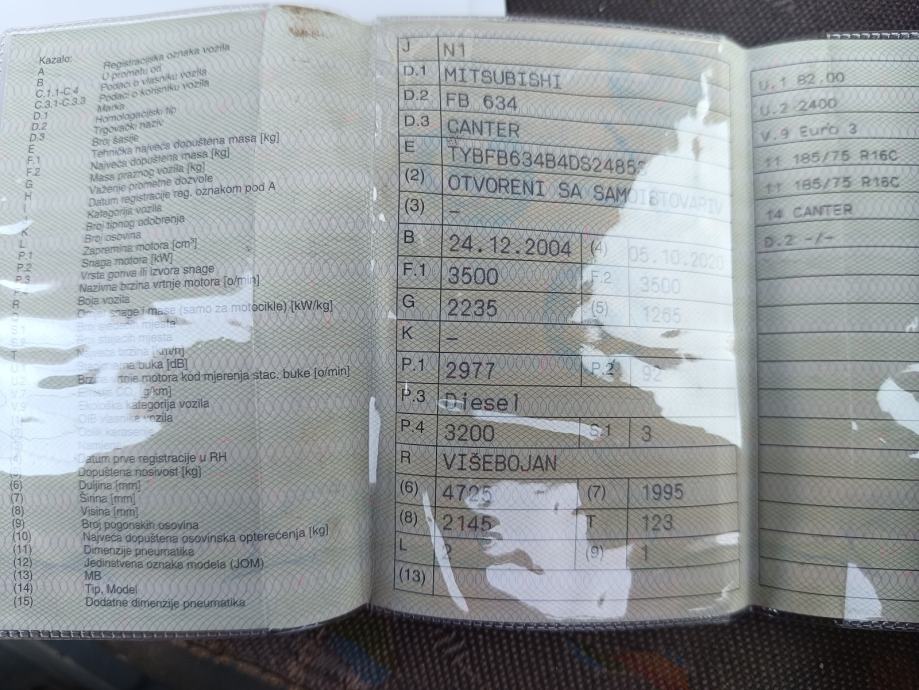 Kazalo:
A Registracijska oznaka vozila
B U prometu od
C.1.1-C.4 Podaci o vlasniku vozila
C.3.1-C.3.3 Podaci o korisniku vozila
D.1 Marka
D.2 Homologacijski tip
D.3 Trgovački naziv
E Broj šasije
F.1 Tehnička najveća dopuštena masa [kg]
F.2 Najveća dopuštena masa [kg]
G Masa praznog vozila [kg]
H Važenje prometne dozvole
I Datum registracije reg. oznakom pod A
Kategorija vozila
K Broj tipnog odobrenja
L Broj osovina
P.1 Zapremina motora [cm³]
P.2 Snaga motora [kW]
P.3 Vrsta goriva ili izvora snage
Nazivna brzina vrtnje motora [o/min]
R Boja vozila
snage i mase (samo za motocikle) [kW/kg]
mjesta
mjesta
brzina [km/h]
buka [dB]
vrtnje motora kod mjerenja stac. buke [o/min]
g/km]
kategorija vozila
vozila
Datum prve registracije u RH
Dopuštena nosivost [kg]
(6) Duljina [mm]
(7) Širina [mm]
(8) Visina [mm]
(9) Broj pogonskih osovina
(10) Najveća dopuštena osovinska opterećenja [kg]
(11) Dimenzije pneumatika
(12) Jedinstvena oznaka modela (JOM)
(13) MB
(14) Tip, Model
(15) Dodatne dimenzije pneumatika
J N1
D.1 MITSUBISHI
D.2 FB 634
D.3 CANTER
E TYBFB634B4DS2485
(2) OTVORENI SA SAMOISTOVARIV
(3) –
B 24.12.2004 (4) 05.10.2020
F.1 3500 F.2 3500
G 2235 (5) 1265
K –
P.1 2977 P.2 92
P.3 Diesel
P.4 3200 S.1 3
R VIŠEBOJAN
(6) 4725 (7) 1995
(8) 2145 T 123
L 2 (9) 1
(13)
U.1 82.00
U.2 2400
V.9 Euro 3
11 185/75 R16C
11 185/75 R16C
14 CANTER
D.2 -/-